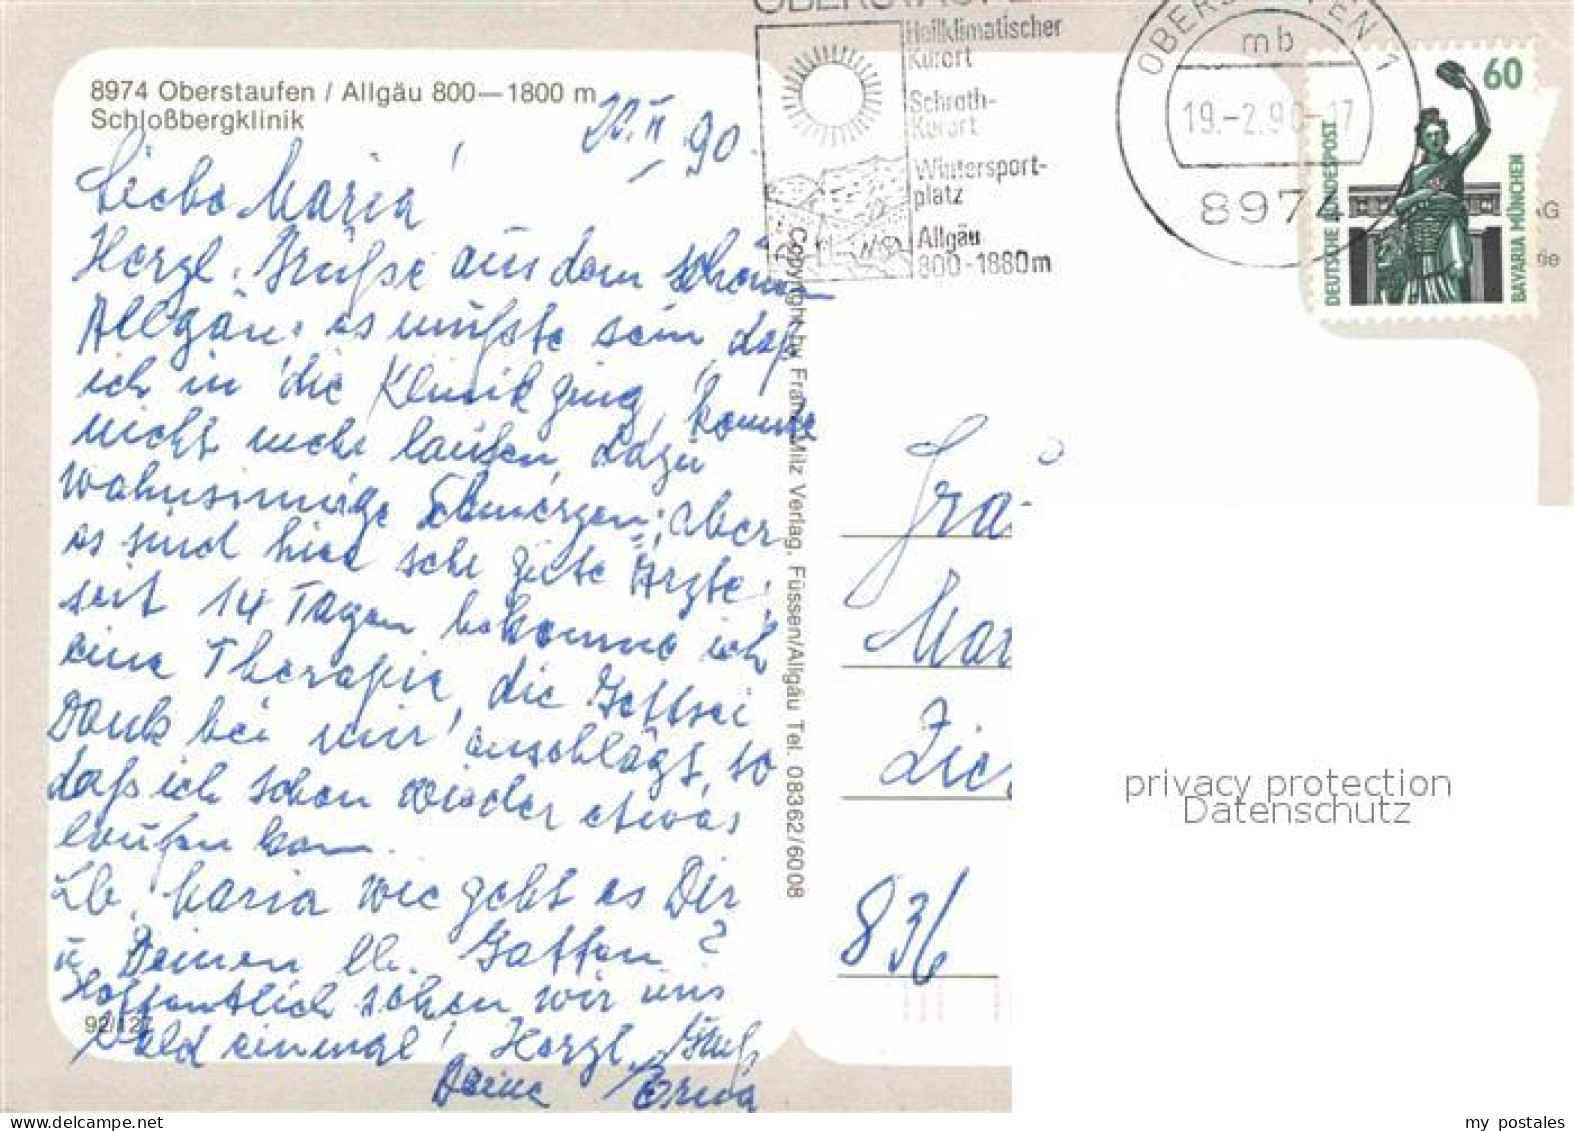 8974 Oberstaufen / Allgäu 800—1800 m
Schloßbergklinik
20.II.90.
Liebe Maria!
Herzl. Grüße aus dem schönen
Allgäu. es mußte sein, daß
ich in die Klinik ging, konnte
nicht mehr laufen, dazu
wahnsinnige Schmerzen; aber
es sind hier sehr gute Ärzte;
seit 14 Tagen bekomme ich
eine Therapie, die Gottsei
Dank bei mir anschlägt, so
daß ich schon wieder etwas
laufen kann.
Lb. Maria wie geht es Dir
u. Deinen lb. Gatten?
Hoffentlich sehen wir uns
bald einmal! Herzl. Gruß
Deine Erna
92/127
Copyright by Franz Milz Verlag, Füssen/Allgäu Tel. 08362/6008
OBERSTAUFEN
Heilklimatischer
Kurort
Schroth-
Kurort
Wintersport-
platz
Allgäu
800-1880m
OBERSTAUFEN 1
mb
19.-2.90-17
8974
60
DEUTSCHE BUNDESPOST
BAVARIA MÜNCHEN
AG
ie
Fra
Mar
Zie
836
privacy protection
Datenschutz
my postales